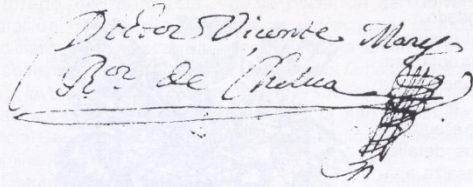 Doctor Vicente Mares
R.or de Chelua